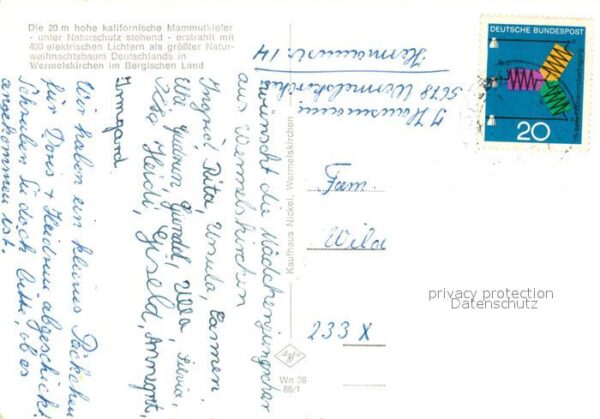 Die 20 m hohe kalifornische Mammutkiefer
- unter Naturschutz stehend - erstrahlt mit
400 elektrischen Lichtern als größter Natur-
weihnachtsbaum Deutschlands in
Wermelskirchen im Bergischen Land
wünscht die Mädchenjungschar
aus Wermelskirchen
Ingrid Rita, Ursula, Carmen,
Ulla, Silvia
Heidi, Annegret,
Irmgard
Wir haben ein kleines Päckchen
für Doris + Heidrun abgeschickt!
Schreiben Sie doch bitte, ob es
angekommen ist.
Kaufhaus Nickel, Wermelskirchen
Hausmann,
5678 Wermelskirchen
Hermannstr. 14
DEUTSCHE BUNDESPOST
20
Fam.
Wild
233X
privacy protection
Datenschutz
Wn 36
66/1